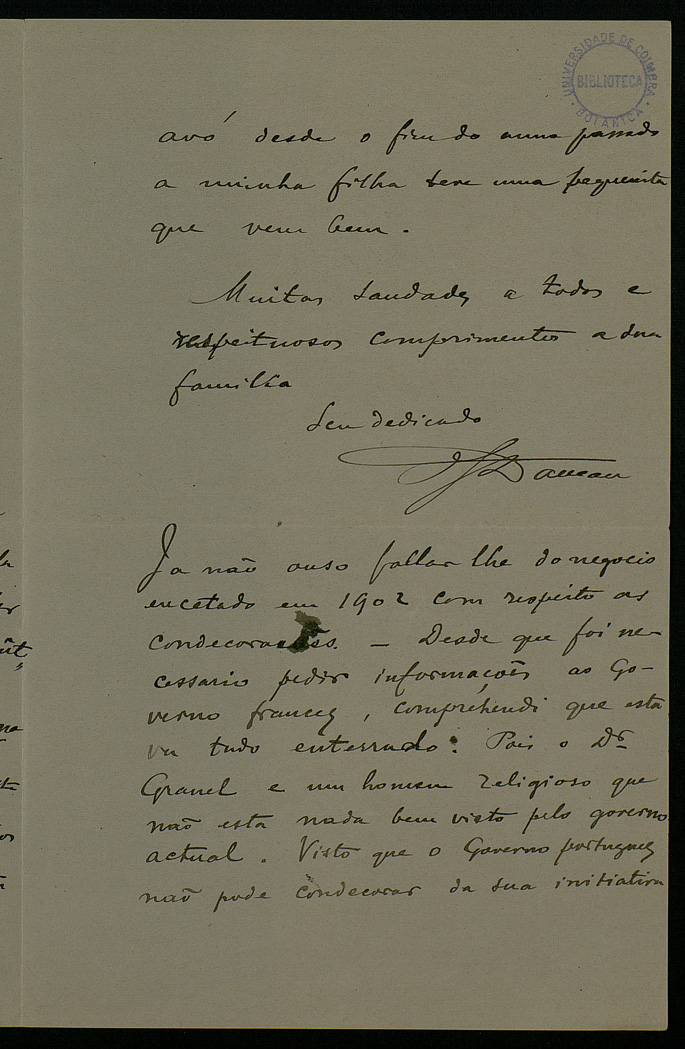 UNIVERSIDADE DE COIMBRA
BIBLIOTECA
BOTANICA
avó desde o fim do anno passado
a minha filha teve uma pequenita
que vem bem.
Muitas saudades a todos e
respeituosos comprimentos a sua
familia
Seu dedicado
Daveau
Ja não ouso fallar lhe do negocio
encetado em 1902 com respeito as
condecorações. — Desde que foi ne-
cessario pedir informações ao Go-
verno francez, comprehendi que esta
va tudo enterrado: Pois o Dr.
Granel e um homem religioso que
não esta nada bem visto pelo governo
actual. Visto que o Governo portuguez
não pode condecorar da sua initiativa